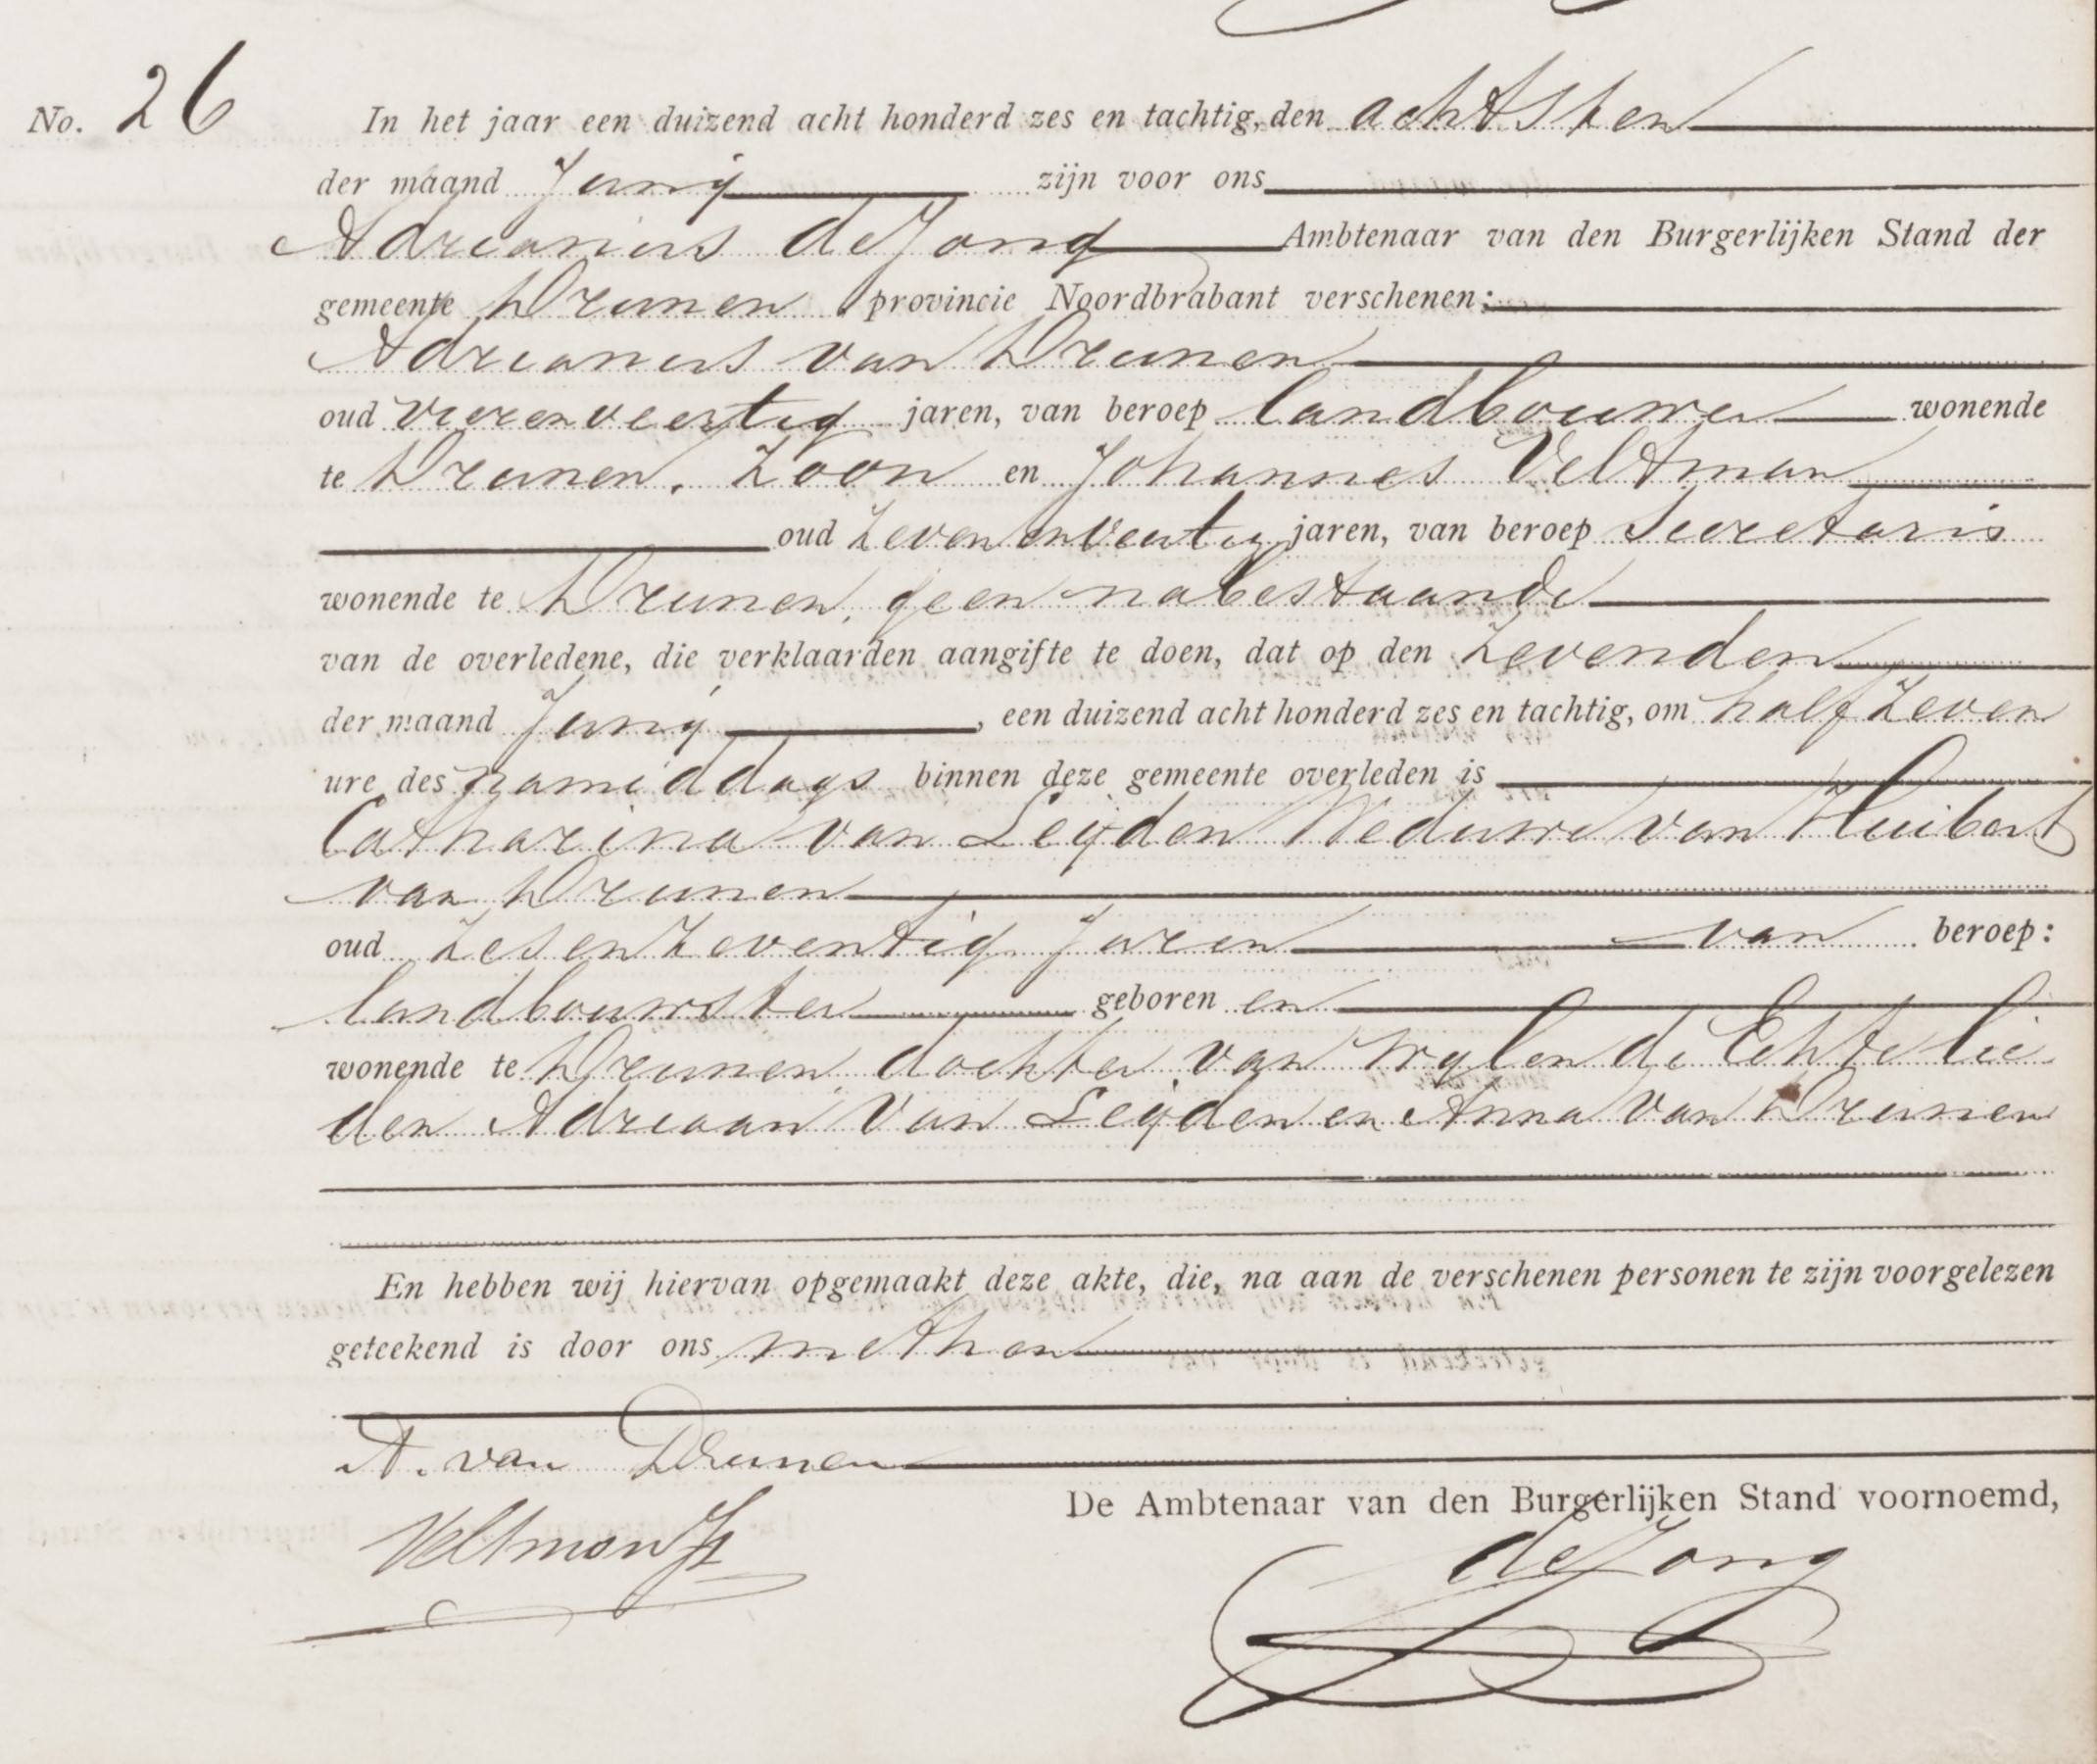 No. 26 In het jaar een duizend acht honderd zes en tachtig, den achtsten
der maand Junij zijn voor ons
Adrianus de Jong Ambtenaar van den Burgerlijken Stand der
gemeente Drunen provincie Noordbrabant verschenen:
Adrianus van Drunen
oud vierenveertig jaren, van beroep landbouwer wonende
te Drunen, Zoon en Johannes Veltman
oud Zevenenveertig jaren, van beroep Secretaris
wonende te Drunen, geen nabestaande
van de overledene, die verklaarden aangifte te doen, dat op den Zevenden
der maand Junij, een duizend acht honderd zes en tachtig, om half Zeven
ure des namiddags binnen deze gemeente overleden is
Catharina van Leijden Weduwe van Huibert
van Drunen
oud Zesenzeventig Jaren van beroep:
landbouwster geboren en
wonende te Drunen, dochter van wylen de Echtelie
den Adriaan van Leijden en Anna van Drunen
En hebben wij hiervan opgemaakt deze akte, die, na aan de verschenen personen te zijn voorgelezen
geteekend is door ons met hen
A. van Drunen
De Ambtenaar van den Burgerlijken Stand voornoemd,
Veltman
de Jong